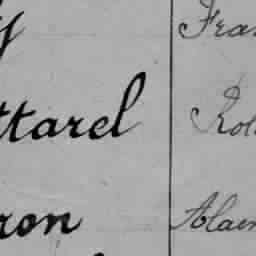 y Fran
ttarel Rol
ron Alain